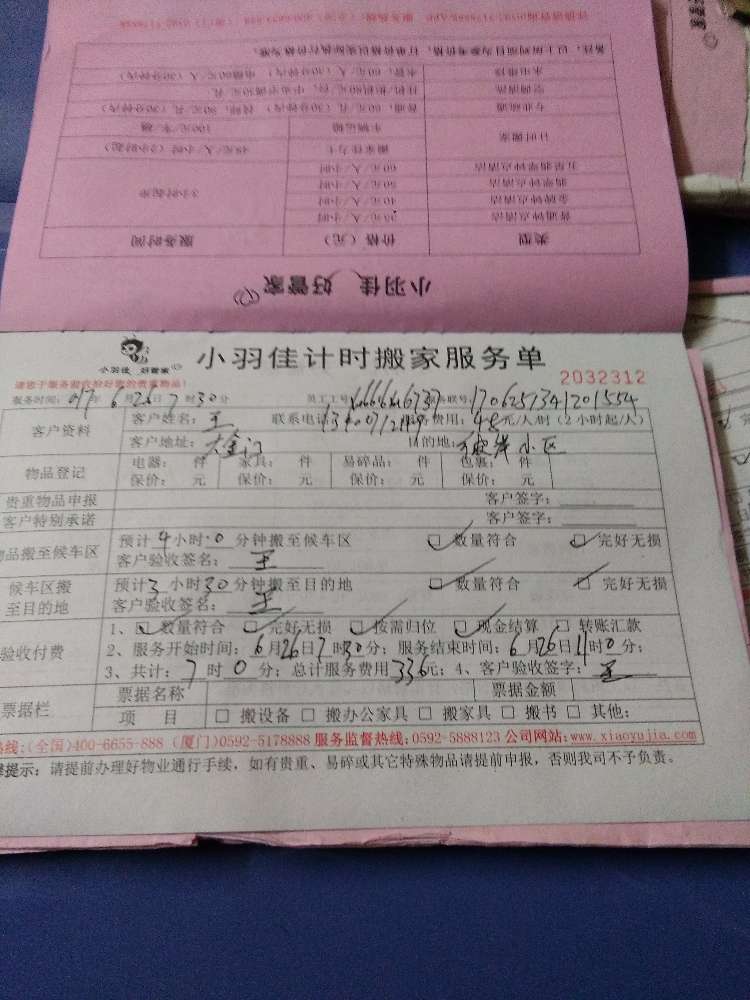 小羽佳 好管家
类型 价格（元） 服务时间
普通钟点清洁 35元/人/小时
金牌钟点清洁 40元/人/小时 3小时起步
翡翠钟点清洁 50元/人/小时
五星翡翠钟点清洁 60元/人/小时
日时搬家 搬家佳力士 48元/人/小时（2小时起）
车辆运输 100元/车/趟
专业疏通 普通，60元/孔（30分钟内） 特殊，90元/孔（30分钟内）
空调清洗
水电维修 水管，60元/人（30分钟内） 电器60元/人（30分钟内）
备注：以上所列项目为参考价格，订单价格以实际执行价格为准。
小羽佳 好管家
小羽佳计时搬家服务单
2032312
请您于服务验收检好您的贵重物品！
服务时间: 年6月26日7时30分 员工工号 务联号: 1706257341201554
客户资料 客户姓名: 王 联系电话 服务费用: 48元/人/时（2小时起/人）
客户地址: 大金门 目的地: 彼岸小区
物品登记 电器: 件 家具: 件 易碎品: 件 包裹: 件
保价: 元 保价: 元 保价: 元 保价: 元
贵重物品申报 客户签字:
客户特别承诺 客户签字:
品搬至候车区 预计4小时0分钟搬至候车区 ☑数量符合 ☑完好无损
客户验收签名: 王
候车区搬至目的地 预计3小时30分钟搬至目的地 ☑数量符合 ☑完好无损
客户验收签名: 王
验收付费 1、☑数量符合 ☑完好无损 ☑按需归位 ☑现金结算 □转账汇款
2、服务开始时间: 6月26日7时30分; 服务结束时间: 6月26日11时0分;
3、共计: 7时0分; 总计服务费用336元; 4、客户验收签字: 王
票据栏 票据名称 票据金额
项 目 □搬设备 □搬办公家具 □搬家具 □搬书 □其他:
热线:(全国)400-6655-888 (厦门)0592-5178888 服务监督热线:0592-5888123 公司网站:www.xiaoyujia.com
提示: 请提前办理好物业通行手续，如有贵重、易碎或其它特殊物品请提前申报，否则我司不予负责。